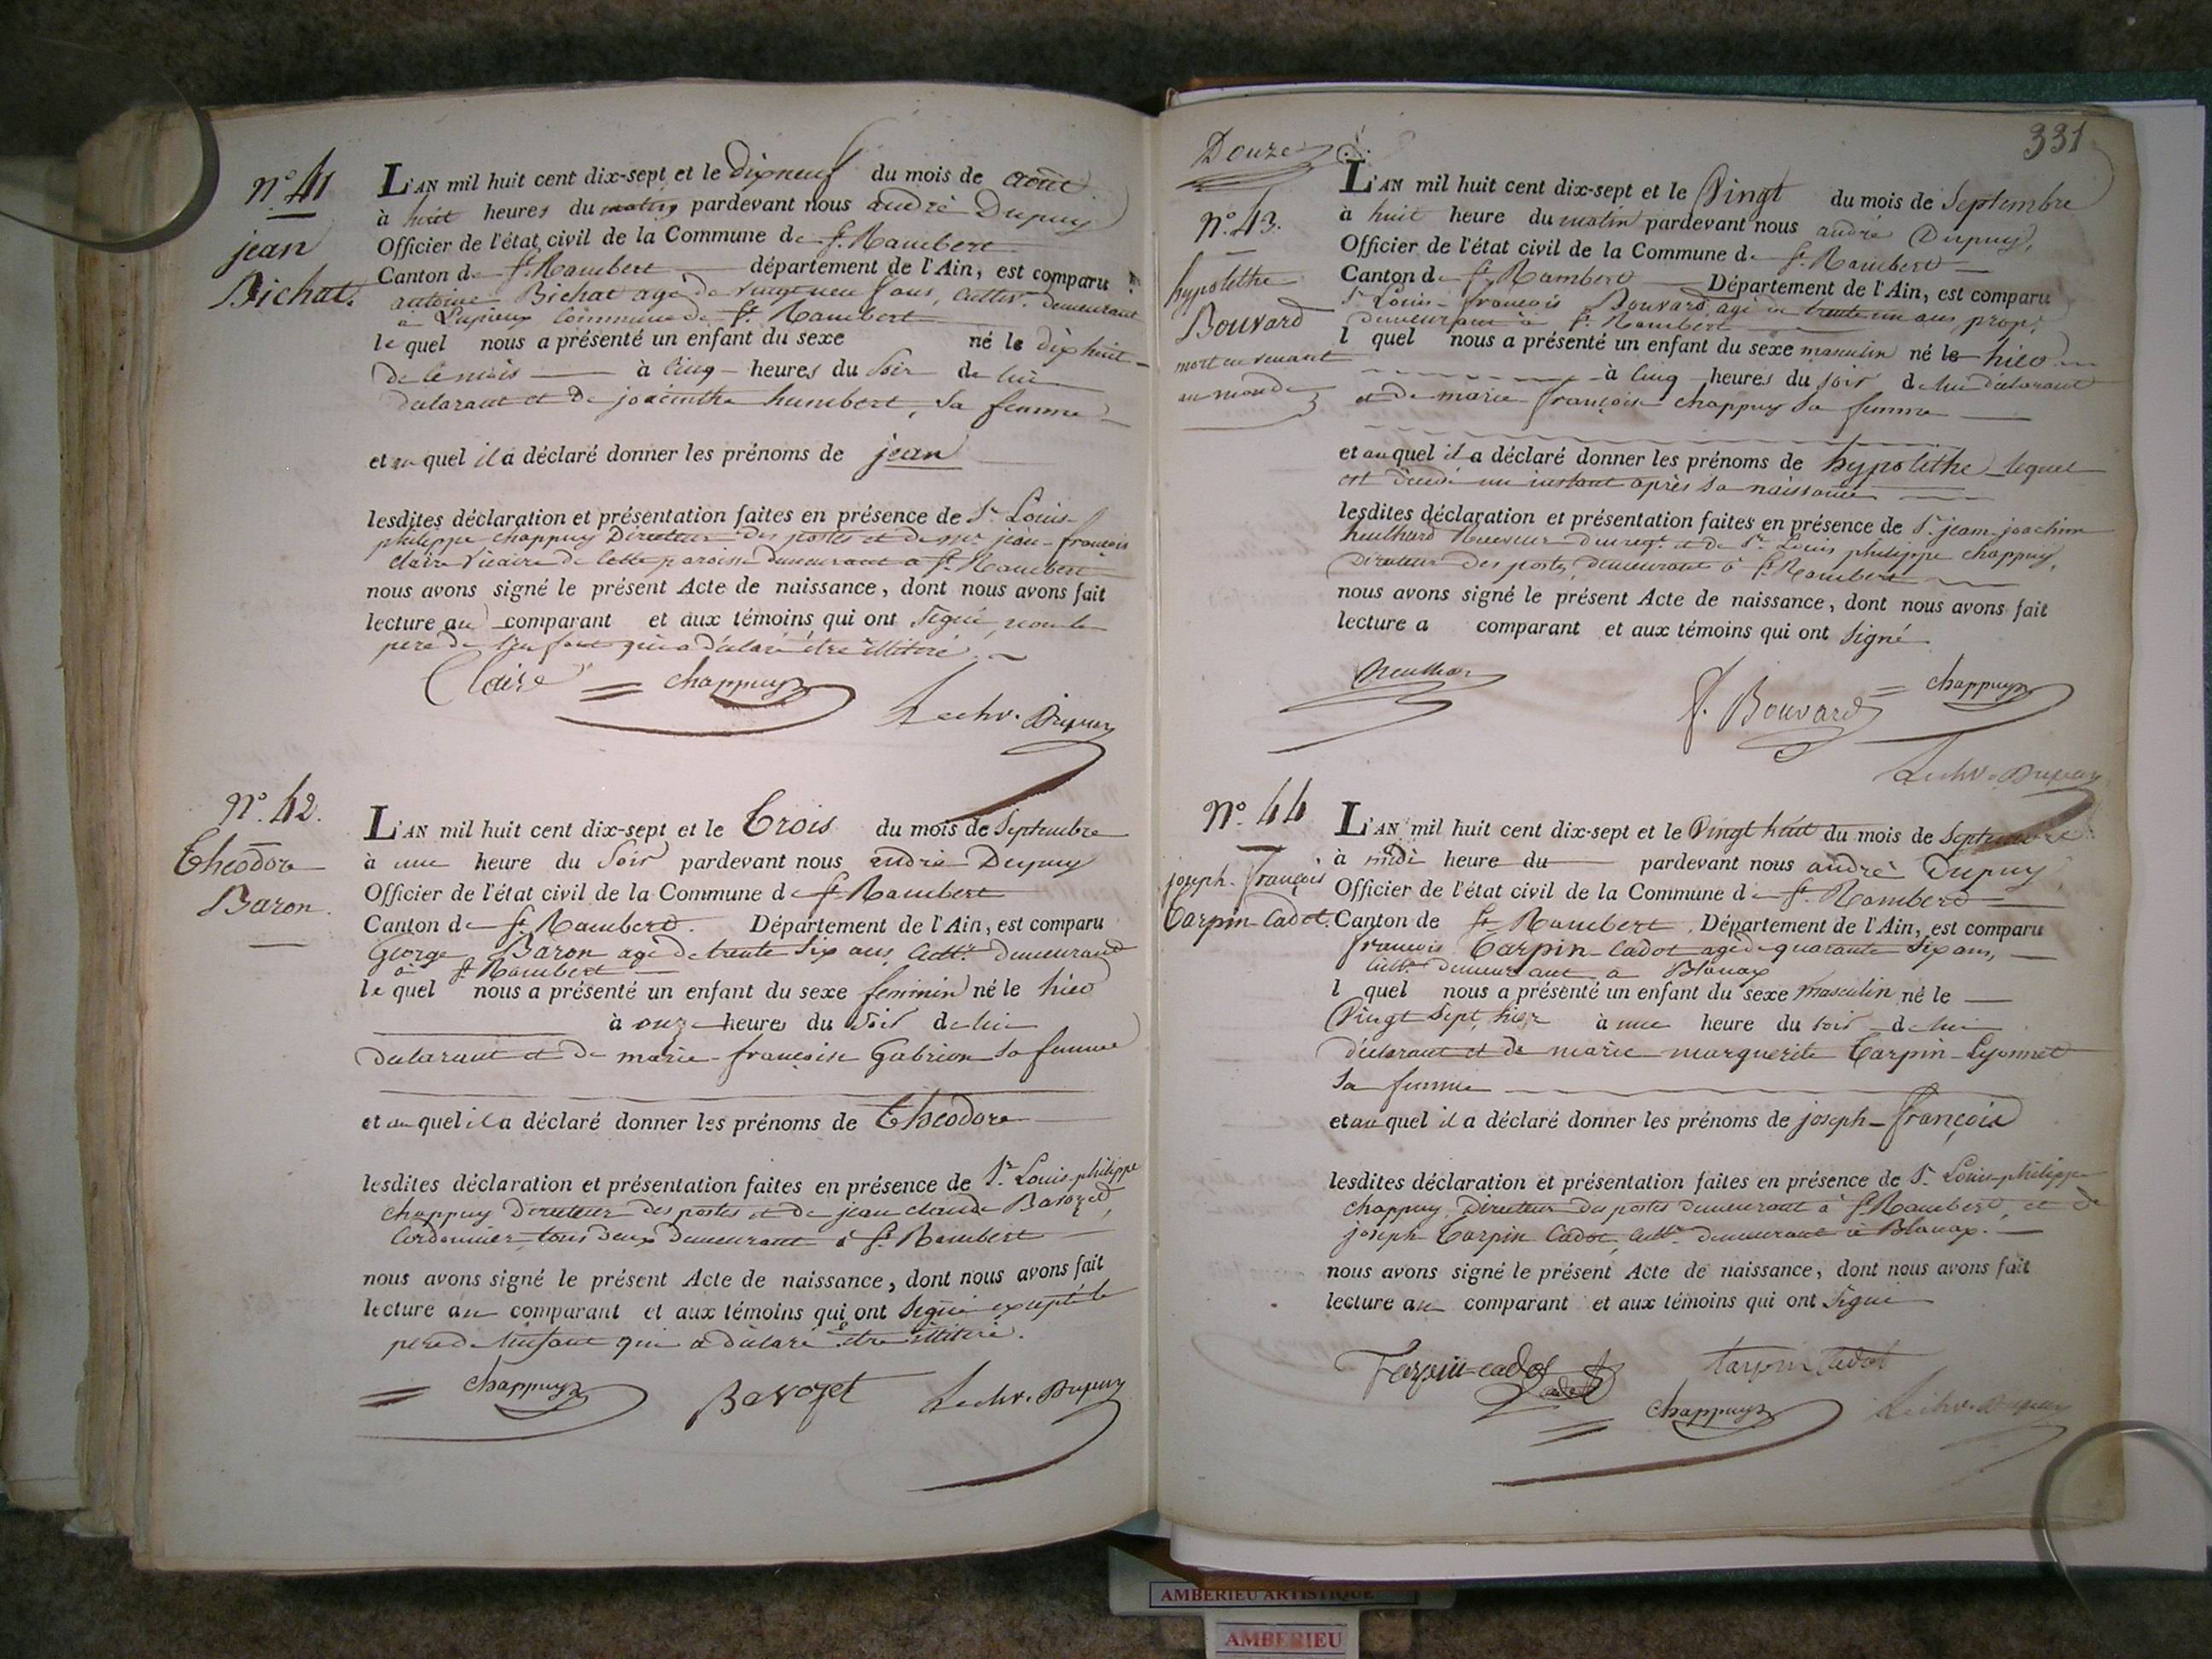 N.° 41
jean
Bichat.
L'AN mil huit cent dix-sept et le dixneuf du mois de août
à huit heures du matin pardevant nous andré Dupuy
Officier de l'état civil de la Commune de St. Rambert
Canton de St. Rambert département de l'Ain, est comparu
antoine Bichat agé de vingt neuf ans, cultivr. demeurant
a Lupieux Commune de St. Rambert
lequel nous a présenté un enfant du sexe né le dix huit
de ce mois à cinq heures du soir de lui
déclarant et de joacinthe humbert, sa femme
et auquel il a déclaré donner les prénoms de jean
lesdites déclaration et présentation faites en présence de Sr. Louis-
philippe chappuy Directeur des postes et de mr. jean-françois
claire vicaire de cette paroisse demeurant a St. Rambert
nous avons signé le présent Acte de naissance, dont nous avons fait
lecture au comparant et aux témoins qui ont signé, non le
pere de l'enfant qui a déclaré être illitéré.
Claire chappuy
Lechv. Dupuy
N.° 42.
Théodore
Baron.
L'AN mil huit cent dix-sept et le Trois du mois de Septembre
à une heure du Soir pardevant nous andré Dupuy
Officier de l'état civil de la Commune de St. Rambert
Canton de St. Rambert. Département de l'Ain, est comparu
George Baron agé de trente Six ans, Cultr. demeurant
à St. Rambert
lequel nous a présenté un enfant du sexe feminin né le hier
à onze heures du Soir de lui
déclarant et de marie-françoise Gabrion sa femme
et auquel il a déclaré donner les prénoms de Théodore
lesdites déclaration et présentation faites en présence de Sr. Louis-philippe
chappuy Directeur des postes et de jean claude Bavozet,
Cordonnier, tous deux demeurant à St. Rambert
nous avons signé le présent Acte de naissance, dont nous avons fait
lecture au comparant et aux témoins qui ont Signé excepté le
pere de l'enfant qui a déclaré être illitéré.
chappuy Bavozet Lechv. Dupuy
331
Douze
N.° 43.
hypolithe
Bouvard
mort en venant
au monde
L'AN mil huit cent dix-sept et le Vingt du mois de Septembre
à huit heure du matin pardevant nous andré Dupuy,
Officier de l'état civil de la Commune de St. Rambert
Canton de St. Rambert Département de l'Ain, est comparu
Sr. Louis-françois Bouvard, agé de trente un ans, propr.
demeurant à St. Rambert
l quel nous a présenté un enfant du sexe masculin né le hier
à cinq heures du soir de lui déclarant
et de marie françoise chappuy sa femme
et auquel il a déclaré donner les prénoms de hypolithe lequel
est décédé un instant après sa naissance
lesdites déclaration et présentation faites en présence de Sr. jean-joachim
heulhard Receveur d'enregt. et de Sr. Louis philippe chappuy,
Directeur des postes, demeurant à St. Rambert
nous avons signé le présent Acte de naissance, dont nous avons fait
lecture a comparant et aux témoins qui ont signé
f. Bouvard chappuy
Lechv. Dupuy
N.° 44
joseph-françois
Tarpin-Cadot.
L'AN mil huit cent dix-sept et le Vingt huit du mois de Septembre
à midi heure du pardevant nous andré Dupuy
Officier de l'état civil de la Commune de St. Rambert
Canton de St. Rambert. Département de l'Ain, est comparu
françois Tarpin-Cadot agé de quarante Six ans,
cultr. demeurant a Blanaz
l quel nous a présenté un enfant du sexe masculin né le
Vingt Sept, hier à une heure du soir de lui
déclarant et de marie marguerite Tarpin-Lyonnet
Sa femme
et auquel il a déclaré donner les prénoms de joseph-françois
lesdites déclaration et présentation faites en présence de Sr. Louis-philippe
chappuy, Directeur des postes demeurant à St. Rambert, et de
joseph Tarpin Cadot, cultr. demeurant à Blanaz.
nous avons signé le présent Acte de naissance, dont nous avons fait
lecture au comparant et aux témoins qui ont Signé
Tarpin-cadot tarpin Cadot
chappuy Lechv. Dupuy
AMBERIEU ARTISTIQUE
AMBERIEU